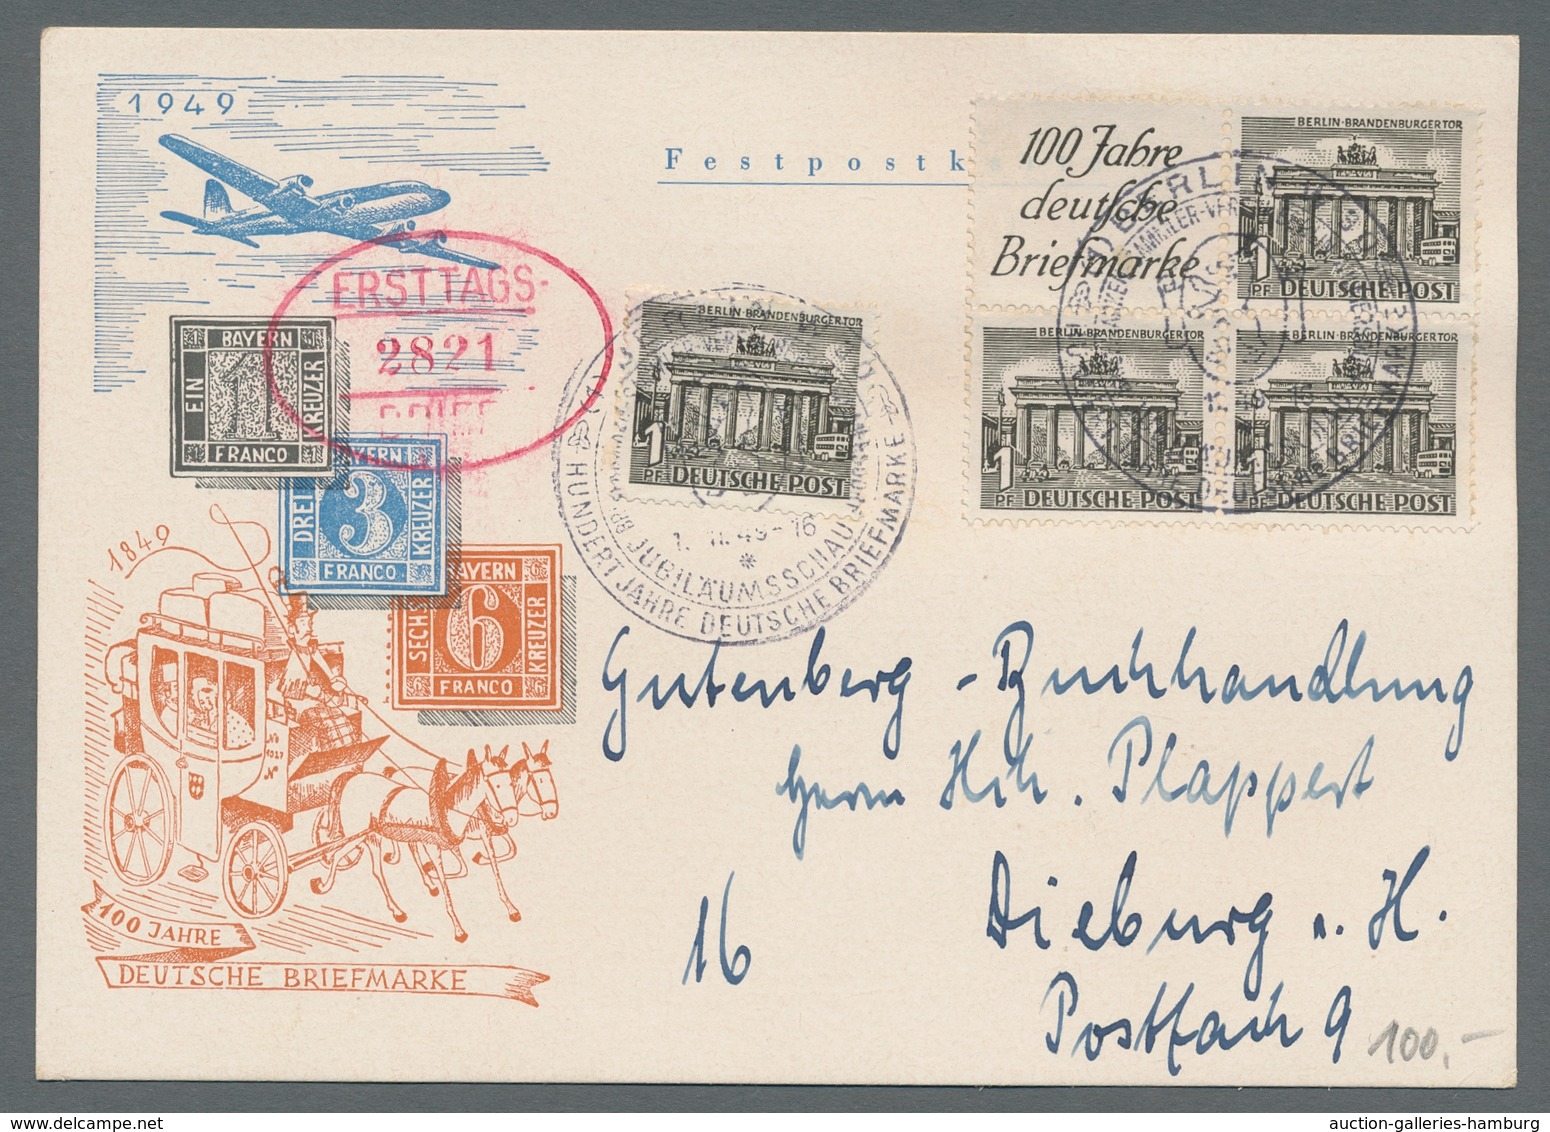 1949
Festpostk
100 Jahre
deutsche
Briefmarke
BERLIN-BRANDENBURGER TOR
1
PF DEUTSCHE POST
BERLIN-BRANDENBURGER TOR
1
PF DEUTSCHE POST
BERLIN-BRANDENBURGER TOR
1
PF DEUTSCHE POST
BERLIN-BRANDENBURGER TOR
1
PF DEUTSCHE POST
BERLIN W
ERSTTAGS-
2821
BRIEF
JUBILÄUMSSCHAU
HUNDERT JAHRE DEUTSCHE BRIEFMARKE
BAYERN
EIN
1
KREUZER
FRANCO
BAYERN
DREI
3
KREUZER
FRANCO
BAYERN
SECHS
6
KREUZER
FRANCO
1849
100 JAHRE
DEUTSCHE BRIEFMARKE
Gutenberg-Buchhandlung
Herrn Hch. Plappert
16 Dieburg i. H.
Postfach 9
100,-
auction-galleries-hamburg